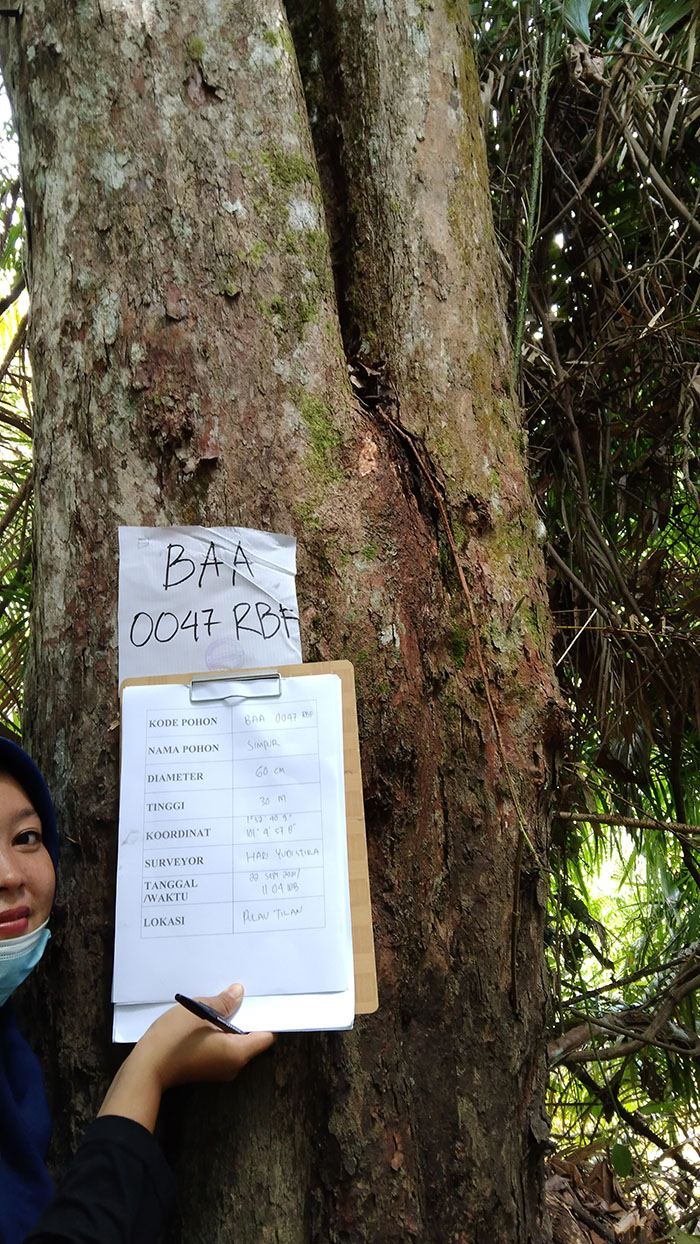 BAA
0047 RBF
KODE POHON BAA 0047 RBF
NAMA POHON SIMPUR
DIAMETER 60 cm
TINGGI 30 M
KOORDINAT 1° 32' 40.9"
101° 9' 57.8"
SURVEYOR HARI YUDISTIRA
TANGGAL 22 SEPT 2021/
/WAKTU 11.04 WIB
LOKASI PULAU TILAN